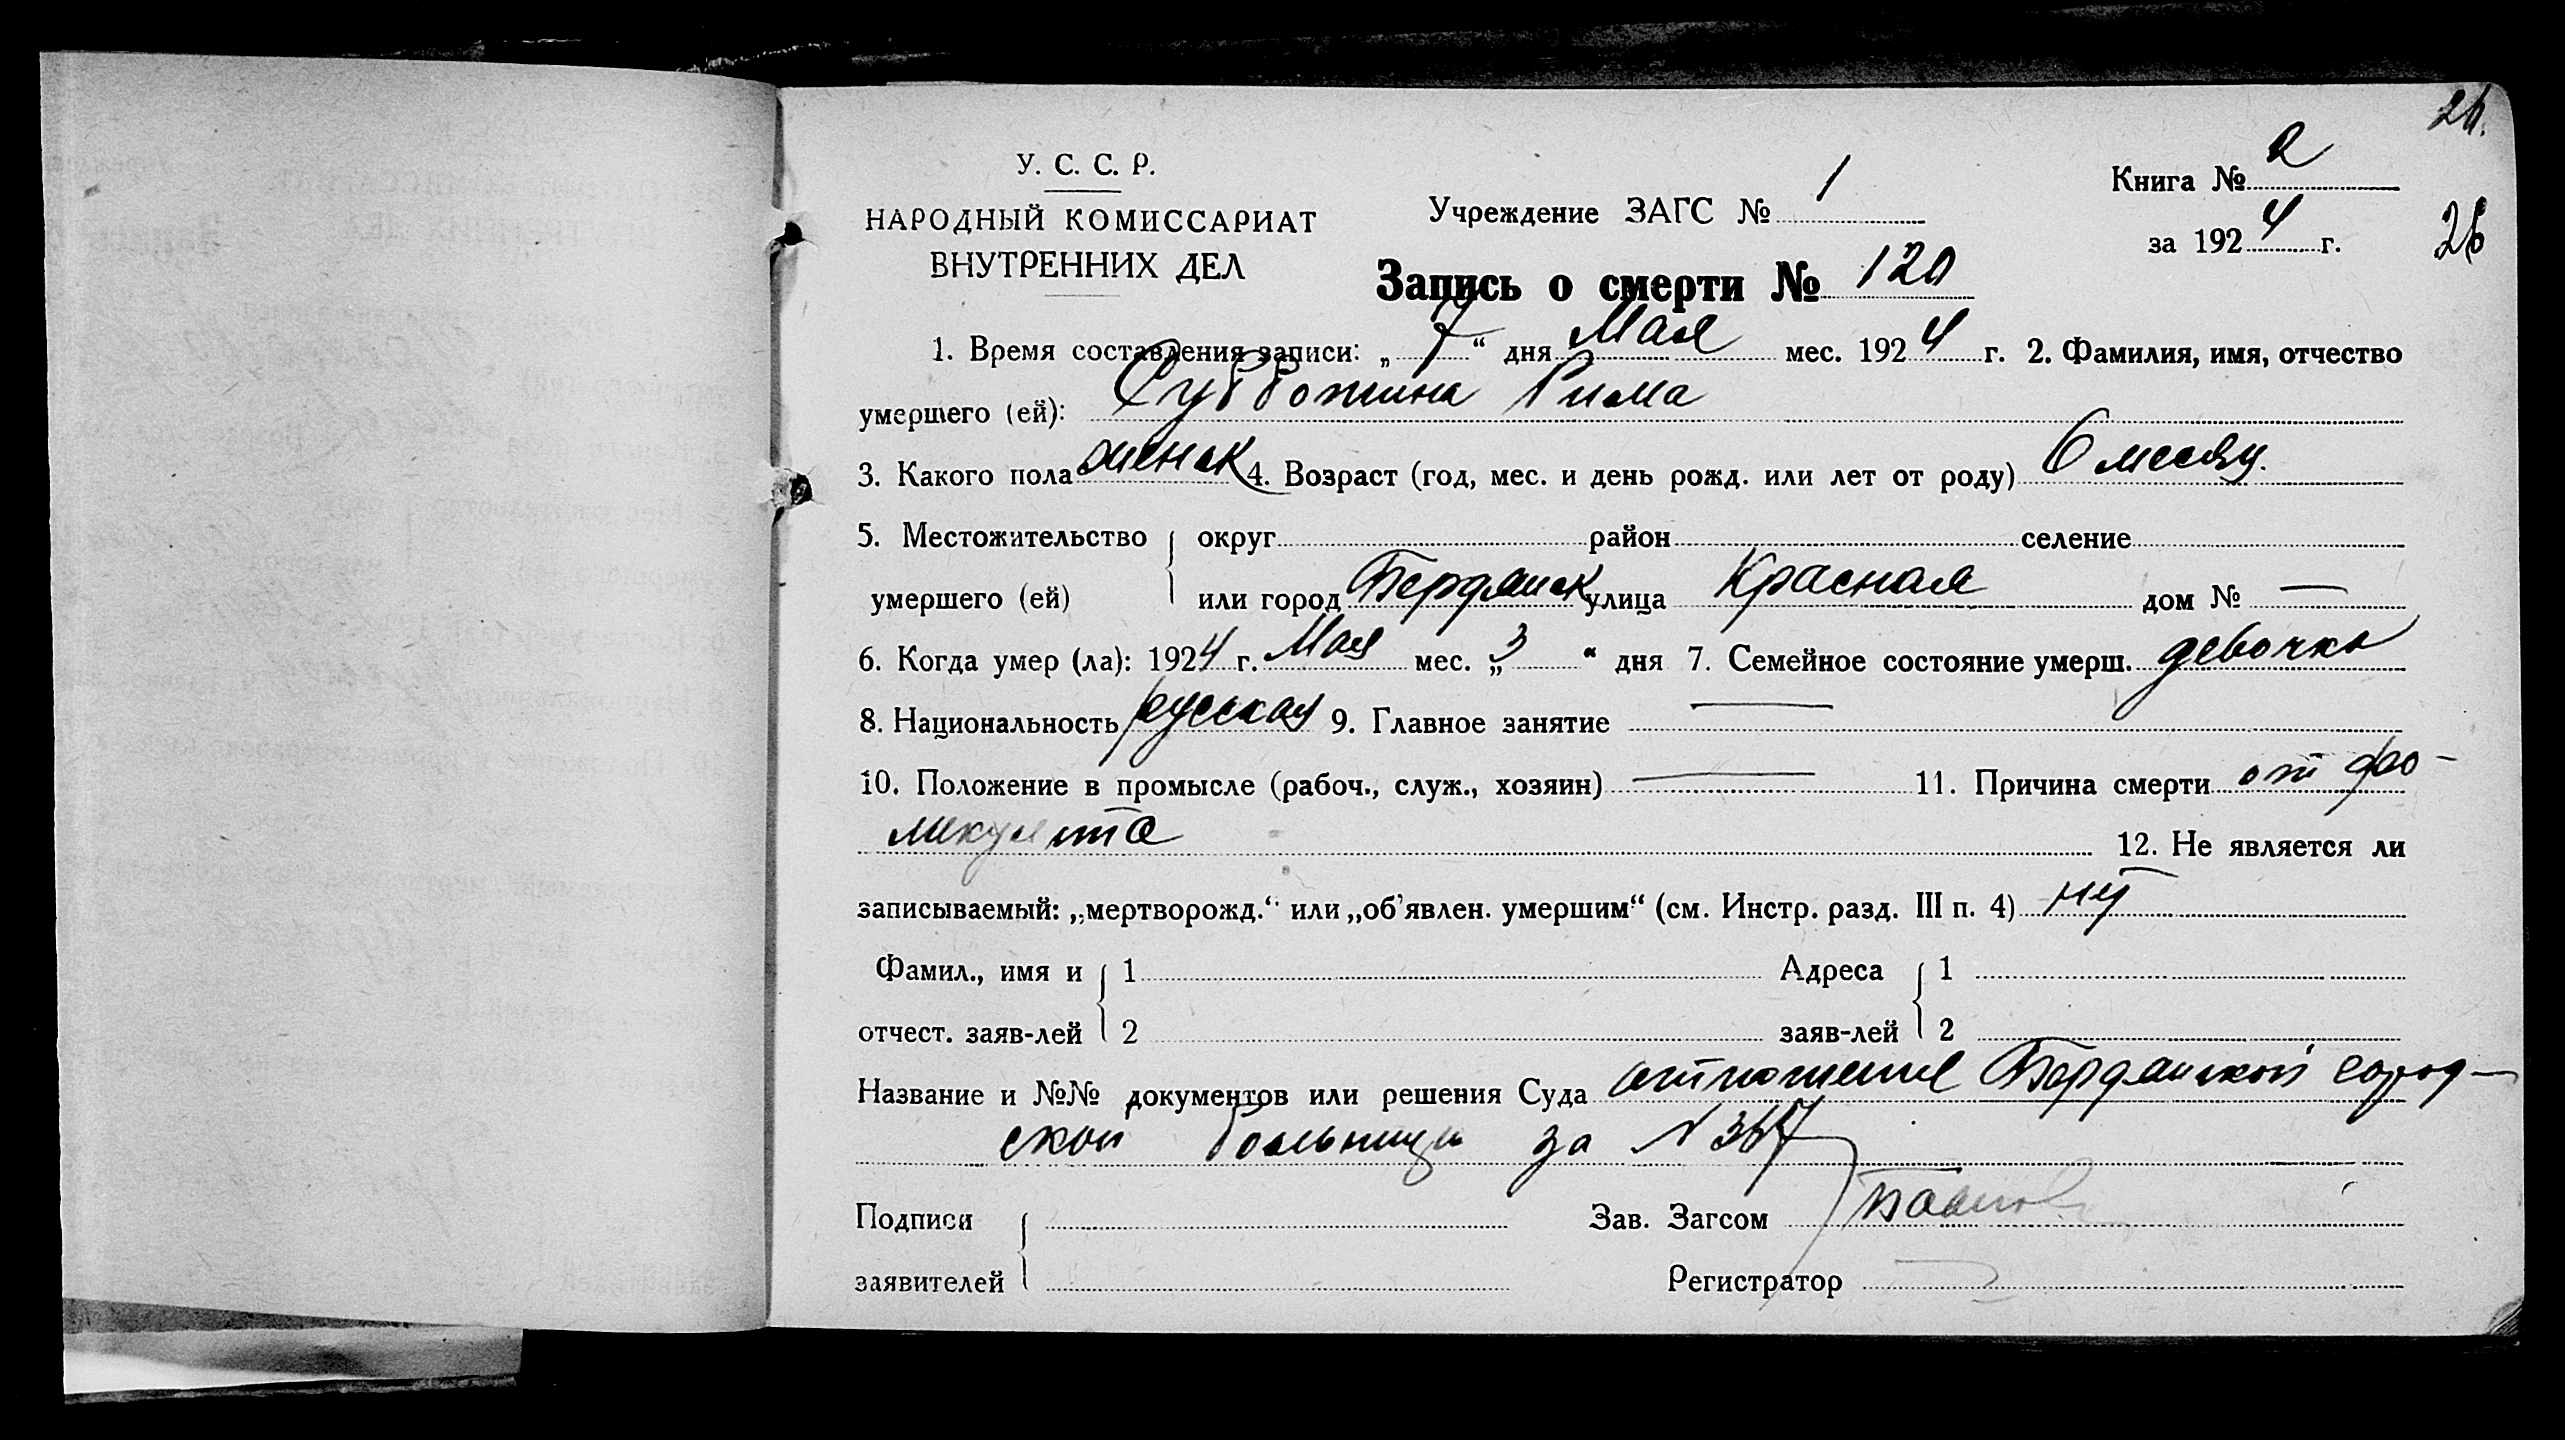 26.
У. С. С. Р.
НАРОДНЫЙ КОМИССАРИАТ
ВНУТРЕННИХ ДЕЛ
Учреждение ЗАГС № 1
Книга № 2
за 1924 г.
26
Запись о смерти № 120
1. Время составления записи: „7“ дня Мая мес. 1924 г. 2. Фамилия, имя, отчество
умершего (ей): Субботина Рима
3. Какого пола женск 4. Возраст (год, мес. и день рожд. или лет от роду) 6 месяц.
5. Местожительство округ район селение
умершего (ей) или город Бердянск улица Красная дом № —
6. Когда умер (ла): 1924 г. Мая мес. „3“ дня 7. Семейное состояние умерш. девочка
8. Национальность русская 9. Главное занятие —
10. Положение в промысле (рабоч., служ., хозяин) — 11. Причина смерти от фо-
ликулита
12. Не является ли
записываемый: „мертворожд.“ или „об'явлен. умершим“ (см. Инстр. разд. III п. 4) нет
Фамил., имя и 1 Адреса 1
отчест. заяв-лей 2 заяв-лей 2
Название и №№ документов или решения Суда отношение Бердянской город-
ской больницы за № 367
Подписи Зав. Загсом
заявителей Регистратор